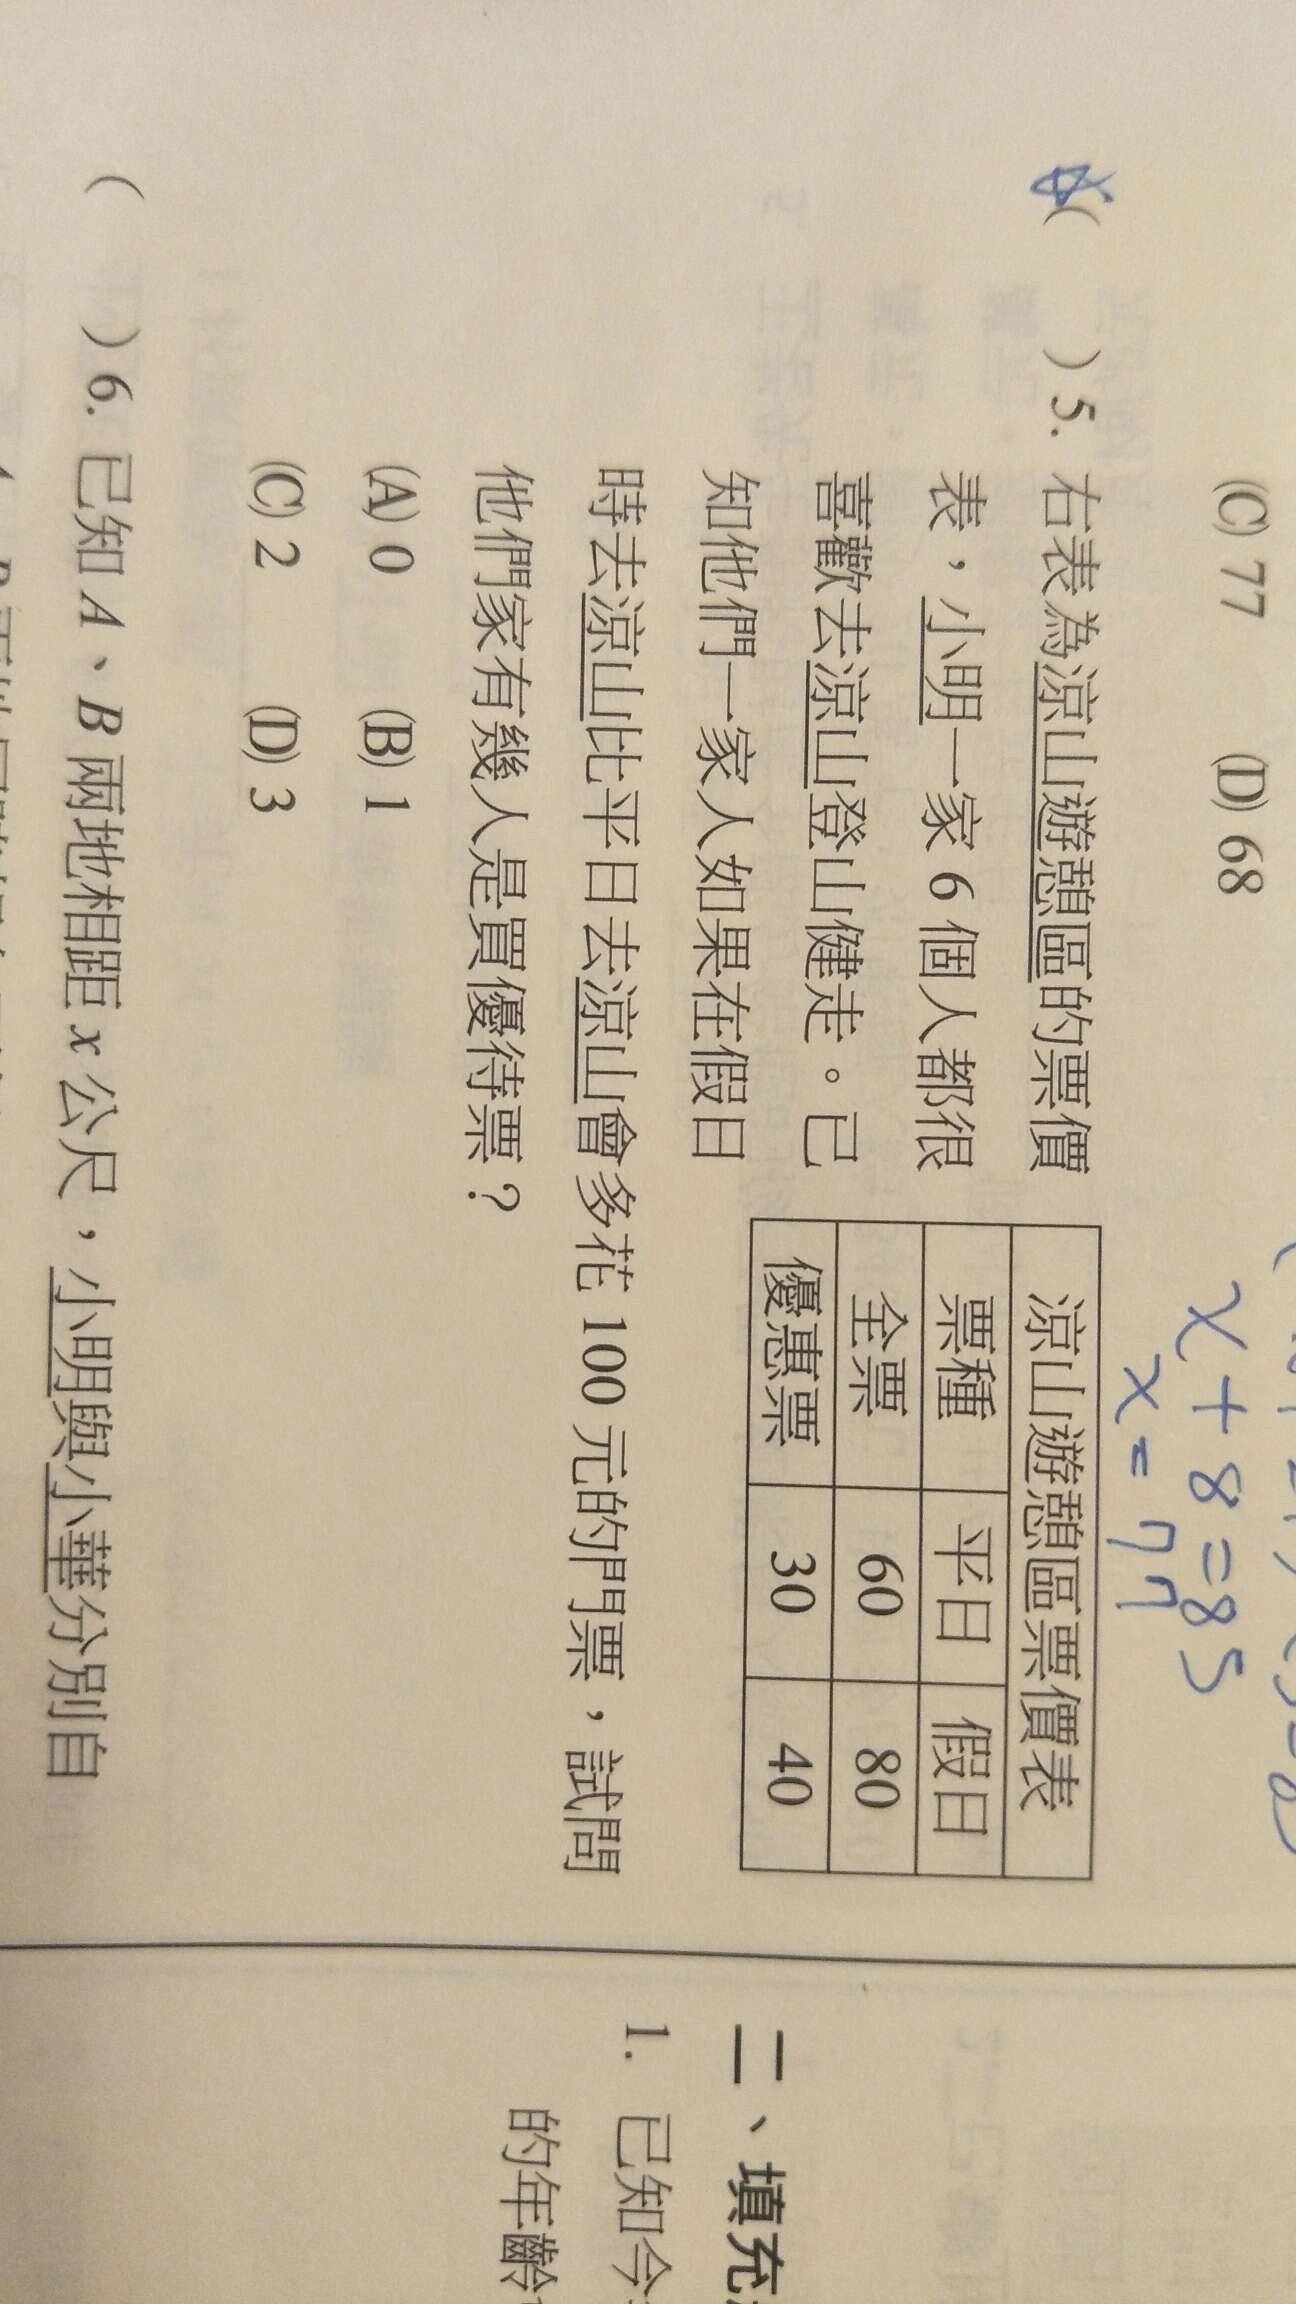 (C) 77 (D) 68
x + 8 = 85
x = 77
( ) 5. 右表為涼山遊憩區的票價
表，小明一家 6 個人都很
喜歡去涼山登山健走。已
知他們一家人如果在假日
時去涼山比平日去涼山會多花 100 元的門票，試問
他們家有幾人是買優待票？
(A) 0 (B) 1
(C) 2 (D) 3
涼山遊憩區票價表
票種 平日 假日
全票 60 80
優惠票 30 40
( ) 6. 已知 A、B 兩地相距 x 公尺，小明與小華分別自
二、填充
1. 已知今
的年齡